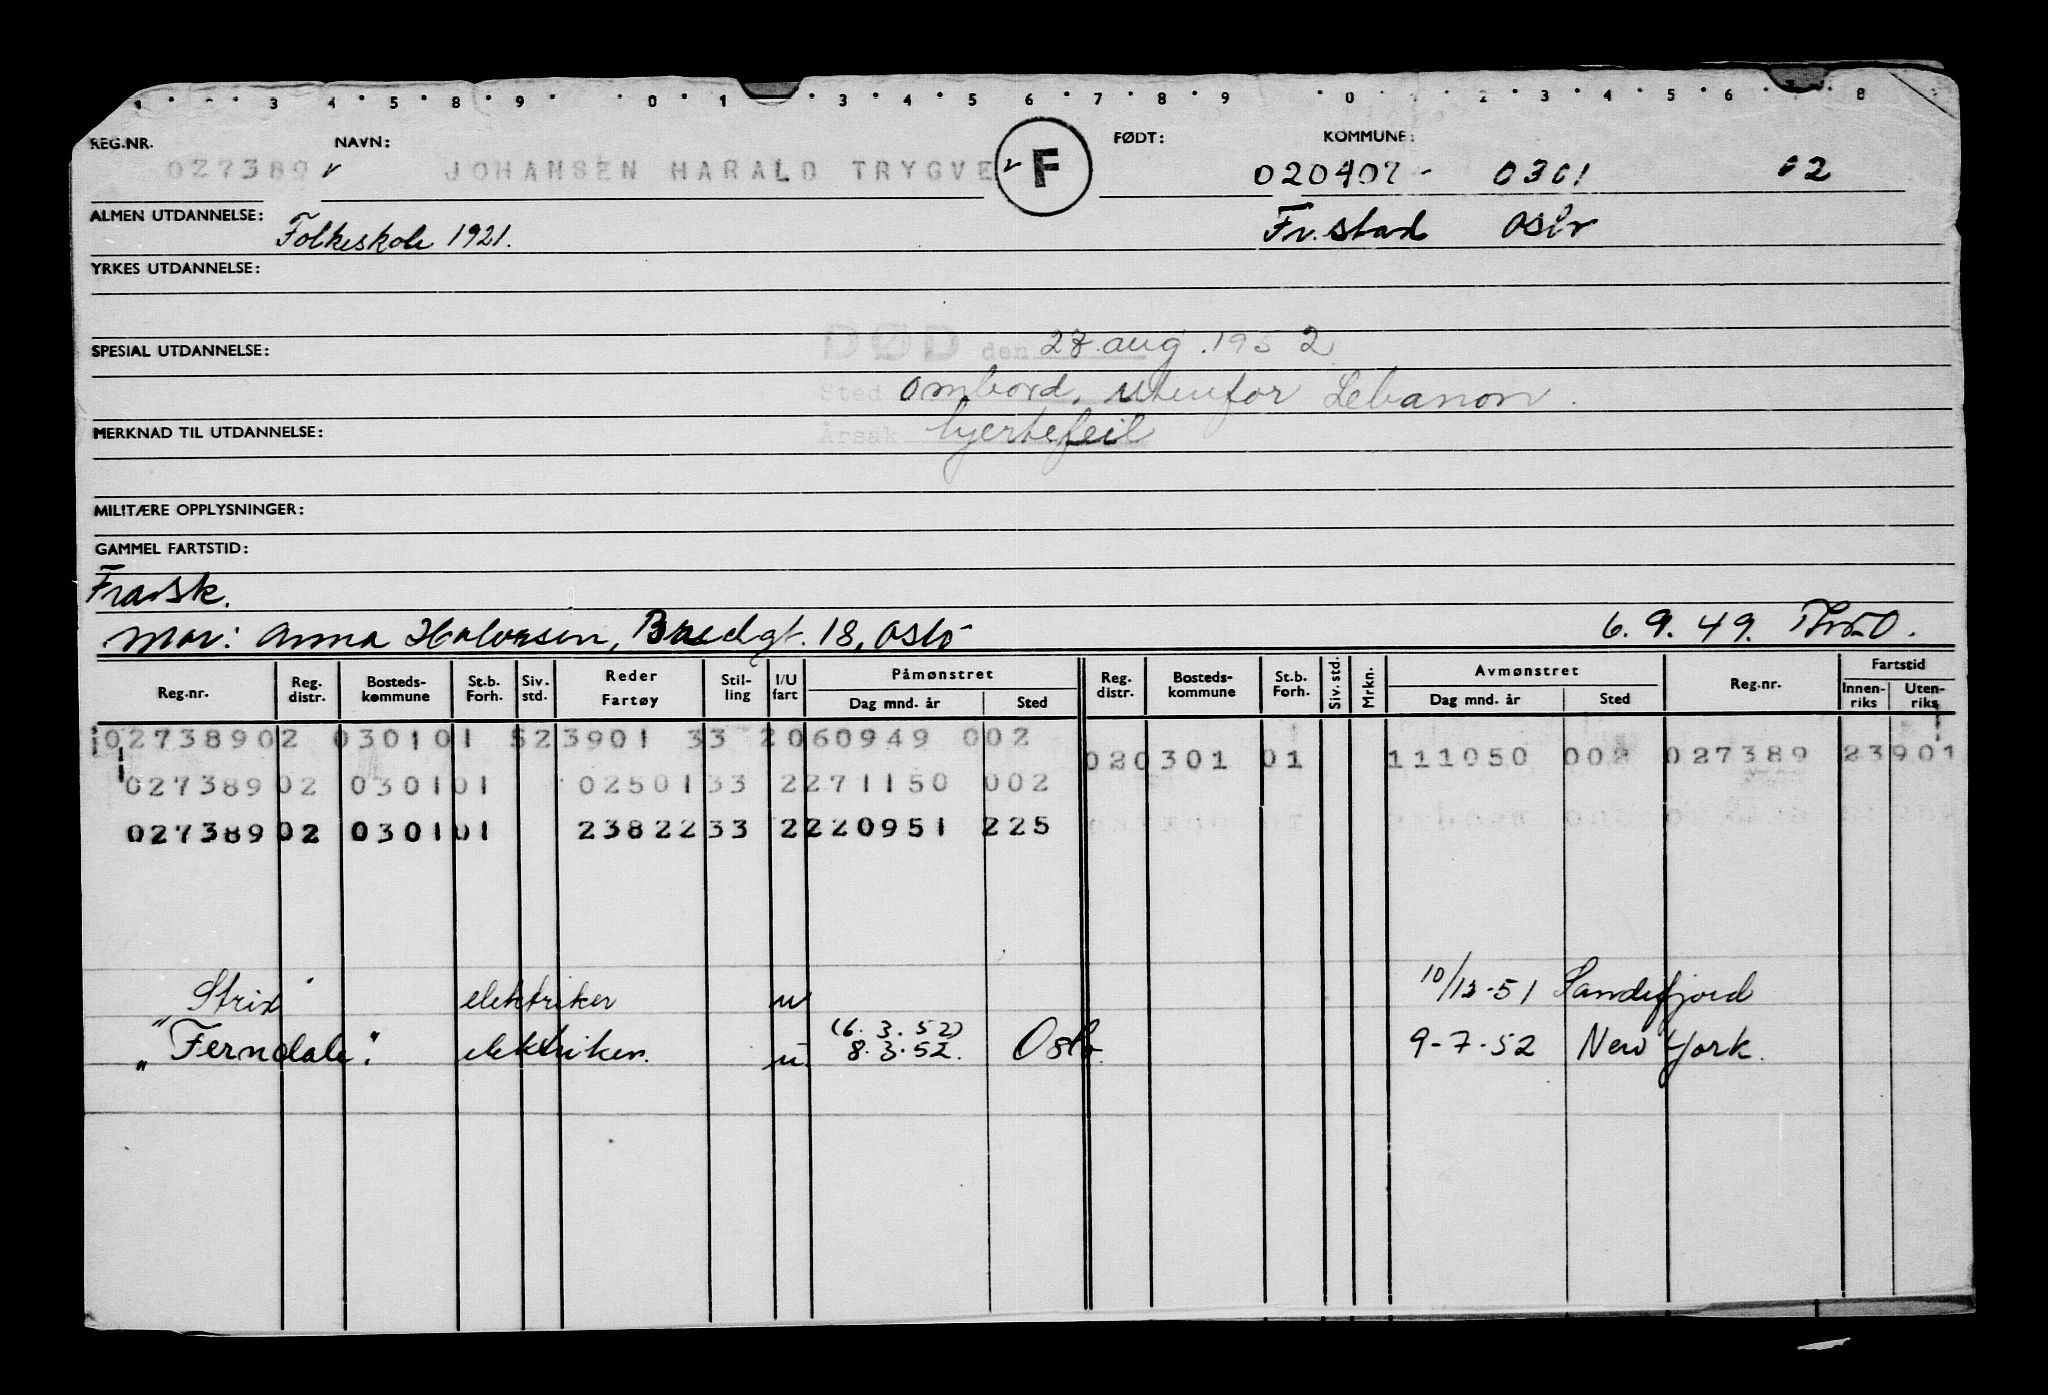 1 3 4 5 8 9 0 1 3 4 5 6 7 8 9 0 2 3 4 5 6 8
REG.NR. NAVN: F FØDT: KOMMUNE:
027389 JOHANSEN HARALD TRYGVE 020407 - 0301 02
ALMEN UTDANNELSE: Folkeskole 1921. Fr.stad Oslo
YRKES UTDANNELSE:
DØD den 27. aug. 1952
SPESIAL UTDANNELSE:
Sted ombord, utenfor Lebanon.
MERKNAD TIL UTDANNELSE: Årsak hjertefeil
MILITÆRE OPPLYSNINGER:
GAMMEL FARTSTID:
Fravsk.
Mor: Anna Halvorsen, Bredgt. 18, Oslo 6.9.49.
Reg.nr. Reg. distr. Bosteds-kommune St.b. Forh. Siv. std. Reder Fartøy Stil-ling I/U fart Påmønstret Dag mnd. år Sted Reg. distr. Bosteds-kommune St.b. Forh. Siv. std. Mrkn. Avmønstret Dag mnd. år Sted Reg.nr. Fartstid Innen-riks Uten-riks
02738902 030101 523901 33 2060949 002
020301 01 111050 002 027389 23901
02738902 030101 0250133 2271150 002
02738902 030101 2382233 2220951 225
"Strix" elektriker u 10/12-51 Sandefjord
(6.3.52)
"Ferndale". elektriker. u. 8.3.52. Oslo. 9-7-52 New York.